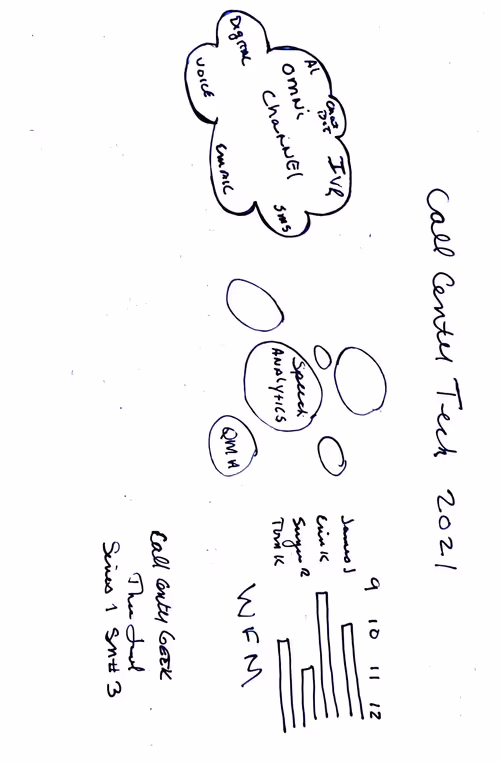 Call Center Tech 2021
AI
Chat
Bot
IVR
DIGITAL
OMNI
ChANNEl
SMS
VOICE
EMAIL
Speech
ANALYTICS
QMA
9 10 11 12
James J
Erin K
Tom K
WFM
Call Center GEEK
Series 1 # 3